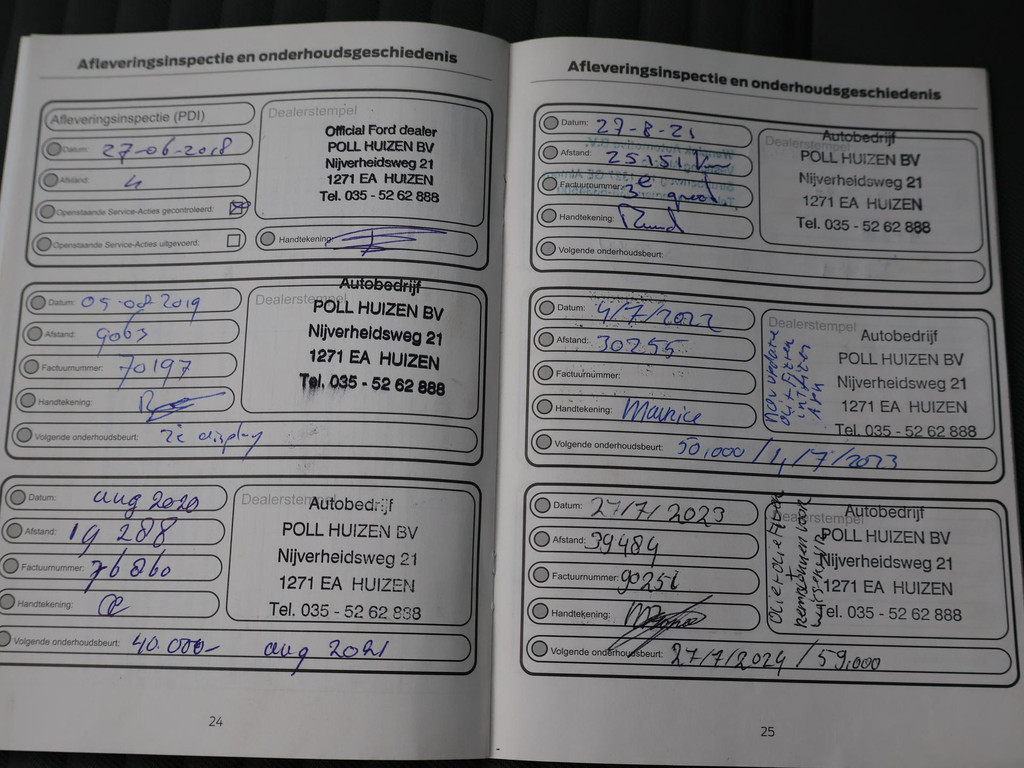 Afleveringsinspectie en onderhoudsgeschiedenis
Afleveringsinspectie (PDI)
Datum: 27-06-2018
Afstand: 4
Openstaande Service-Acties gecontroleerd:
Openstaande Service-Acties uitgevoerd:
Dealerstempel
Official Ford dealer
POLL HUIZEN BV
Nijverheidsweg 21
1271 EA HUIZEN
Tel. 035 - 52 62 888
Handtekening:
Datum: 05-08-2019
Afstand: 9063
Factuurnummer: 70197
Handtekening:
Volgende onderhoudsbeurt: zie display
Dealerstempel
Autobedrijf
POLL HUIZEN BV
Nijverheidsweg 21
1271 EA HUIZEN
Tel. 035 - 52 62 888
Datum: aug 2020
Afstand: 19 288
Factuurnummer: 76860
Handtekening:
Volgende onderhoudsbeurt: 40.000- aug 2021
Dealerstempel
Autobedrijf
POLL HUIZEN BV
Nijverheidsweg 21
1271 EA HUIZEN
Tel. 035 - 52 62 888
24
Afleveringsinspectie en onderhoudsgeschiedenis
Datum: 27-8-21
Afstand: 25151 km
Factuurnummer: 3e
Handtekening: Ruud
Volgende onderhoudsbeurt:
Dealerstempel
Autobedrijf
POLL HUIZEN BV
Nijverheidsweg 21
1271 EA HUIZEN
Tel. 035 - 52 62 888
Datum: 4/7/2022
Afstand: 30255
Factuurnummer:
Handtekening: Maurice
Volgende onderhoudsbeurt: 50,000 / 4/7/2023
Dealerstempel
Autobedrijf
POLL HUIZEN BV
Nijverheidsweg 21
1271 EA HUIZEN
Tel. 035 - 52 62 888
Datum: 27/7/2023
Afstand: 39484
Factuurnummer: 90251
Handtekening:
Volgende onderhoudsbeurt: 27/7/2024 / 59,000
Dealerstempel
Autobedrijf
POLL HUIZEN BV
Nijverheidsweg 21
1271 EA HUIZEN
Tel. 035 - 52 62 888
25